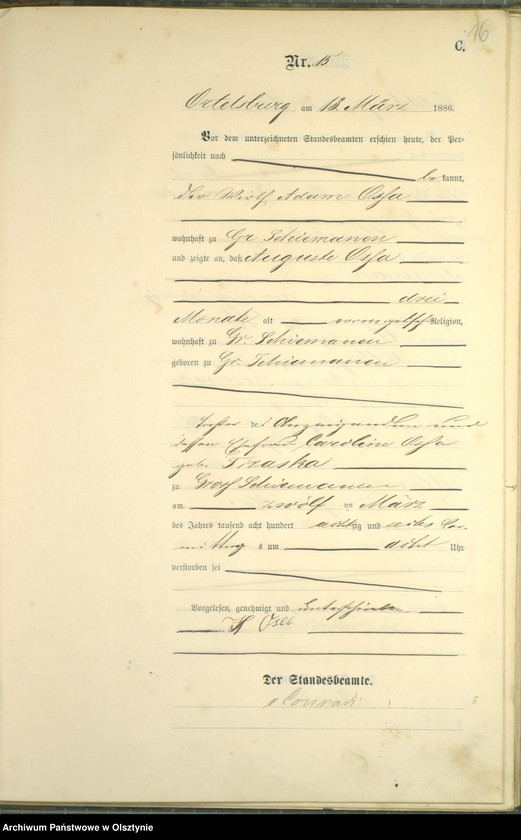 16
C.
Nr. 15
Ortelsburg am 13. März 1886.
Vor dem unterzeichneten Standesbeamten erschien heute, der Per-
sönlichkeit nach
be kannt,
der Wirth Adam Ossa
wohnhaft zu Gr. Schiemanen
und zeigte an, daß Auguste Ossa
drei
Monate alt evangelisch Religion,
wohnhaft zu Gr. Schiemanen
geboren zu Gr. Schiemanen
Tochter des Anzeigenden und
dessen Ehefrau Caroline Ossa
geb. Trzaska
zu Groß Schiemanen
am zwölf ten März
des Jahres tausend acht hundert achtzig und sechs Vor-
mittags um acht Uhr
verstorben sei
Vorgelesen, genehmigt und unterschrieben
Der Standesbeamte.
Conradi
Archiwum Państwowe w Olsztynie